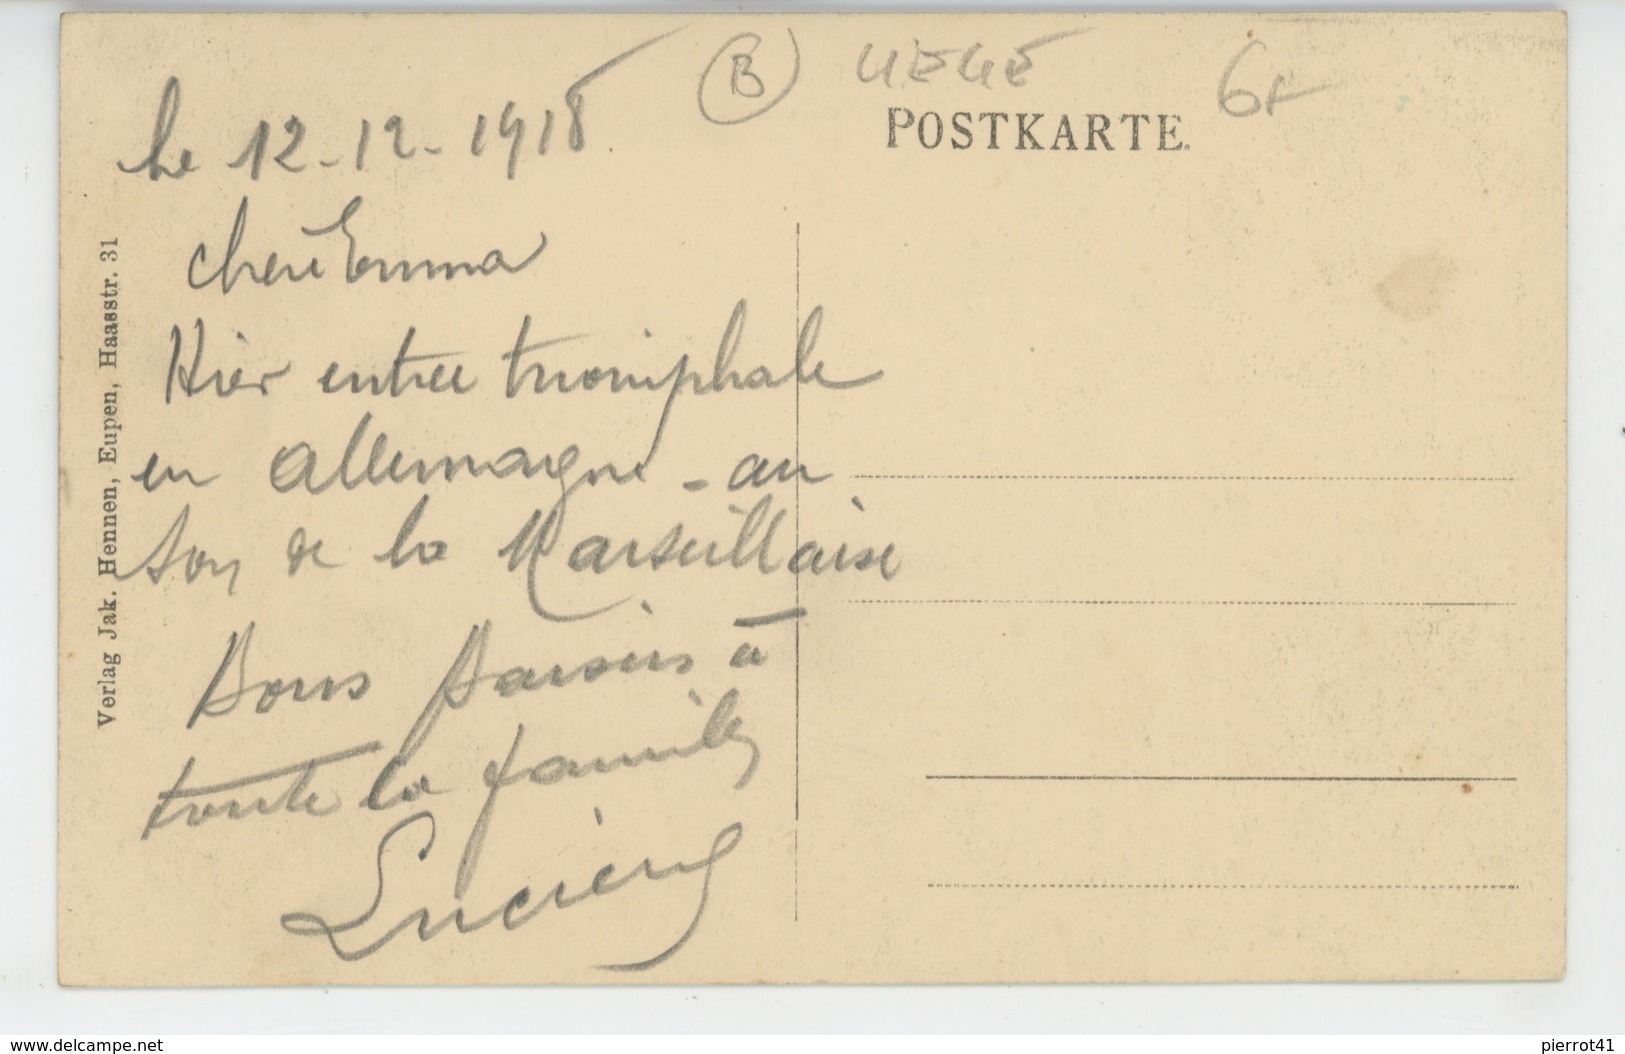 B LIEGE 6F
POSTKARTE.
Le 12-12-1918.
Cheri Emma
Hier entrée triomphale
en allemagne - au
son de la Marseillaise
Bons Baisers à
toute la famille
Lucien
Verlag Jak. Hennen, Eupen, Haasstr. 31
www.delcampe.net
pierrot41